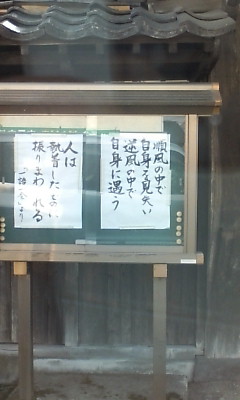 順風の中で
自身を見失い
逆風の中で
自身に遇う
人は
執着したものに
振りまわされる